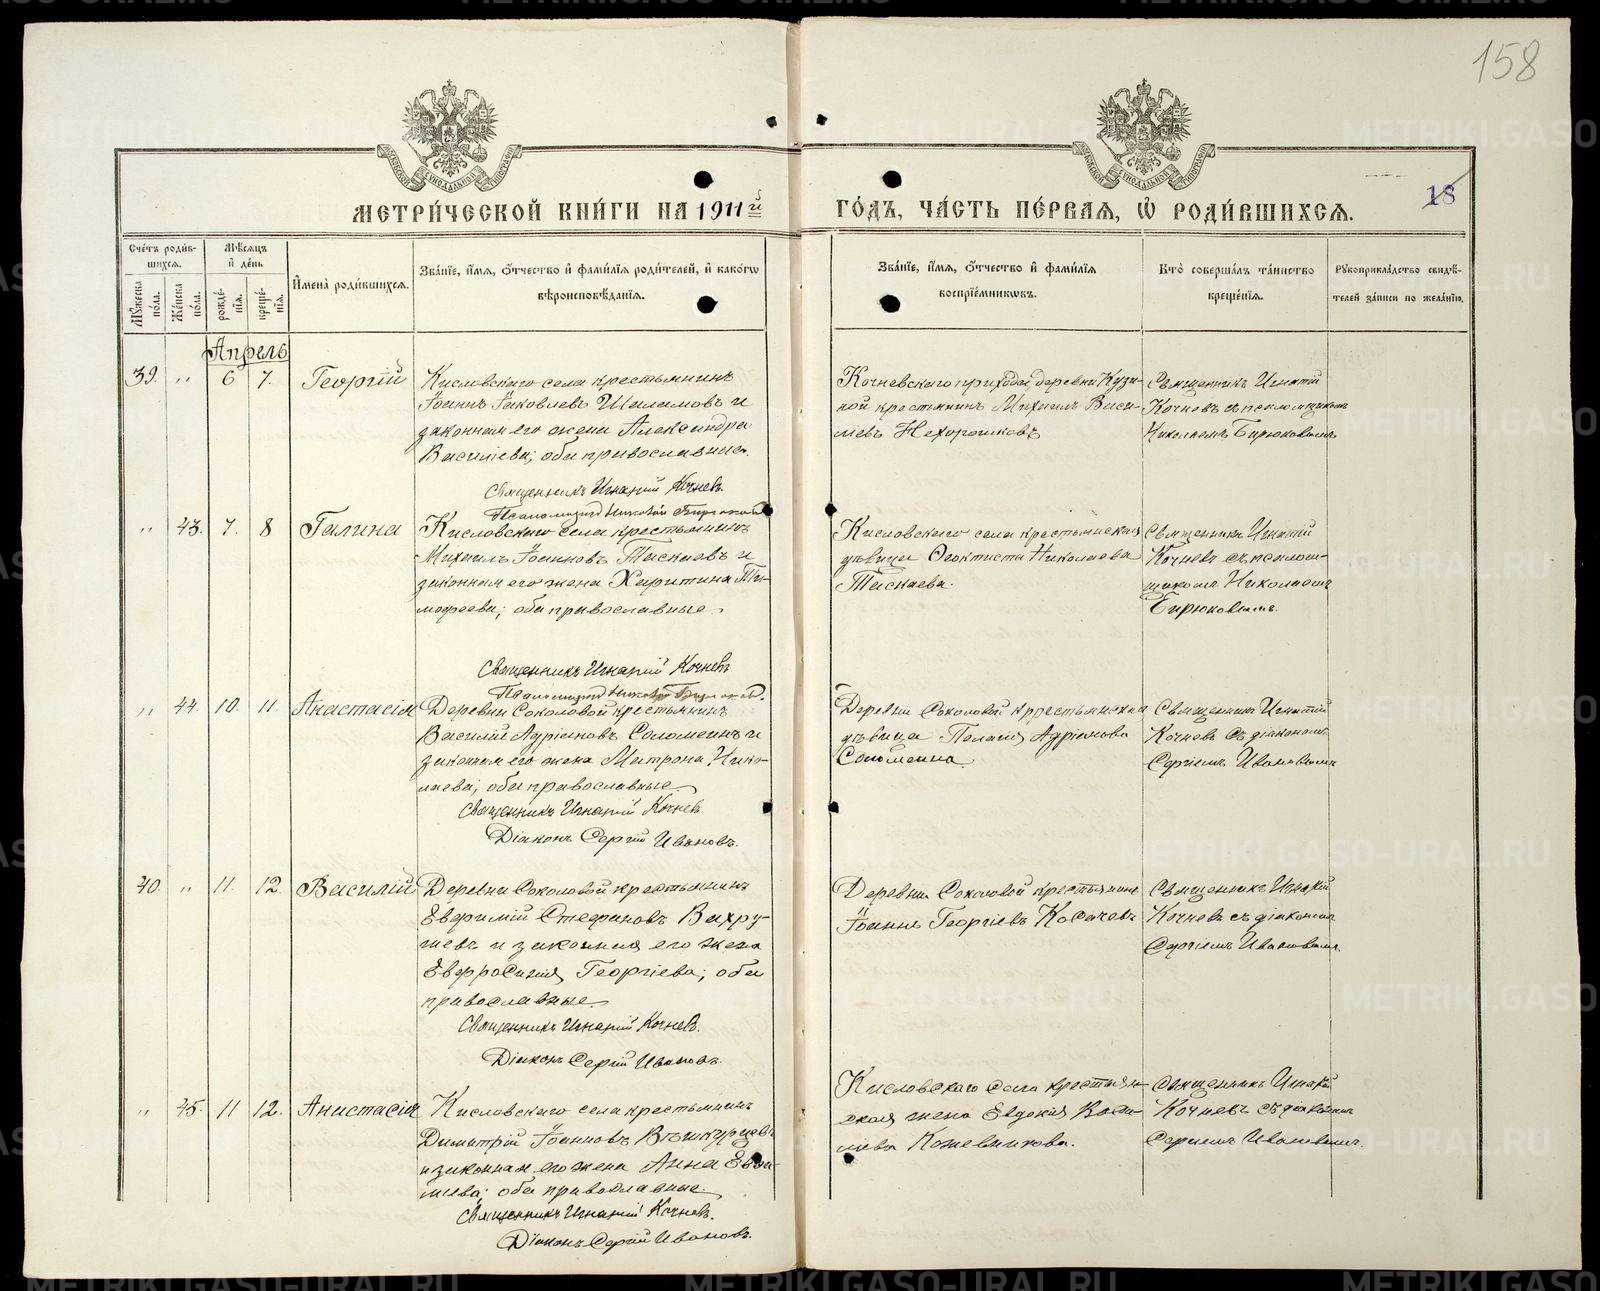 158
МЕТРИ́ЧЕСКОЙ КНИ́ГИ НА 1911 й
ГО́ДЪ, ЧА́СТЬ ПЕ́РВАЯ, Ѡ РОДИ́ВШИХСЯ.
18
Сче́тъ роди́в-
шихся.
Мѣ́сяцъ
и҆ де́нь
Мꙋ́жеска по́ла.
Же́нска по́ла.
рожде́-
нїѧ.
креще́-
нїѧ.
И҆мена̀ роди́вшихся.
Зва́нїе, и҆́мѧ, ѻ҆́тчество и҆ фами́лїѧ роди́телей, и҆ како́гѡ
вѣроисповѣ́данїѧ.
Зва́нїе, и҆́мѧ, ѻ҆́тчество и҆ фами́лїѧ
воспрїе́мникѡвъ.
Кто̀ соверша́лъ та́инство
креще́нїѧ.
Рꙋкоприкла́дство свидѣ́-
телей за́писи по жела́нїю.
Апрель
39. " 6 7. Георгій
Кисловскаго села крестьянинъ
Іоаннъ Іаковлевъ Шаламовъ и
законная его жена Александра
Василіева; оба православные.
Священникъ Игнатій Кочневъ.
Псаломщикъ Николай Бирюковъ
Кочневскаго прихода, деревни Кузи-
ной крестьянинъ Михаилъ Васи-
ліевъ Нехорошковъ
Священникъ Игнатій
Кочневъ съ псаломщикомъ
Николаемъ Бирюковымъ
" 43. 7. 8 Галина
Кисловскаго села крестьянинъ
Михаилъ Іоанновъ Таскаевъ и
законная его жена Харитина Ти-
мофеева; оба православные.
Священникъ Игнатій Кочневъ
Псаломщикъ Николай Бирюковъ.
Кисловскаго села крестьянская
дѣвица Ѳеоктиста Николаева
Таскаева.
Священникъ Игнатій
Кочневъ съ псалом-
щикомъ Николаемъ
Бирюковымъ.
" 44. 10. 11. Анастасія
Деревни Соколовой крестьянинъ
Василій Адріановъ Соломеинъ и
законная его жена Матрона Нико-
лаева; оба православные
Священникъ Игнатій Кочневъ.
Діаконъ Сергій Ивановъ.
Деревни Соколовой крестьянская
дѣвица Пелагія Адріанова
Соломеина.
Священникъ Игнатій
Кочневъ съ діакономъ
Сергіемъ Ивановымъ
40. " 11. 12. Василій
Деревни Соколовой крестьянинъ
Евфимій Стефановъ Вахру-
шевъ и законная его жена
Евфросинія Георгіева; оба
православные.
Священникъ Игнатій Кочневъ.
Діаконъ Сергій Ивановъ.
Деревни Соколовой крестьянинъ
Іоаннъ Георгіевъ Косачевъ
Священникъ Игнатій
Кочневъ съ діакономъ
Сергіемъ Ивановымъ.
" 45. 11 12. Анастасія
Кисловскаго села крестьянинъ
Димитрій Іоанновъ
и законная его жена Анна
оба православные.
Священникъ Игнатій Кочневъ.
Діаконъ Сергій Ивановъ.
Кисловскаго села крестьян-
ская жена Евдокія Васи-
ліева Кожевникова.
Священникъ Игнатій
Кочневъ съ діакономъ
Сергіемъ Ивановымъ.
METRIKI.GASO-URAL.RU